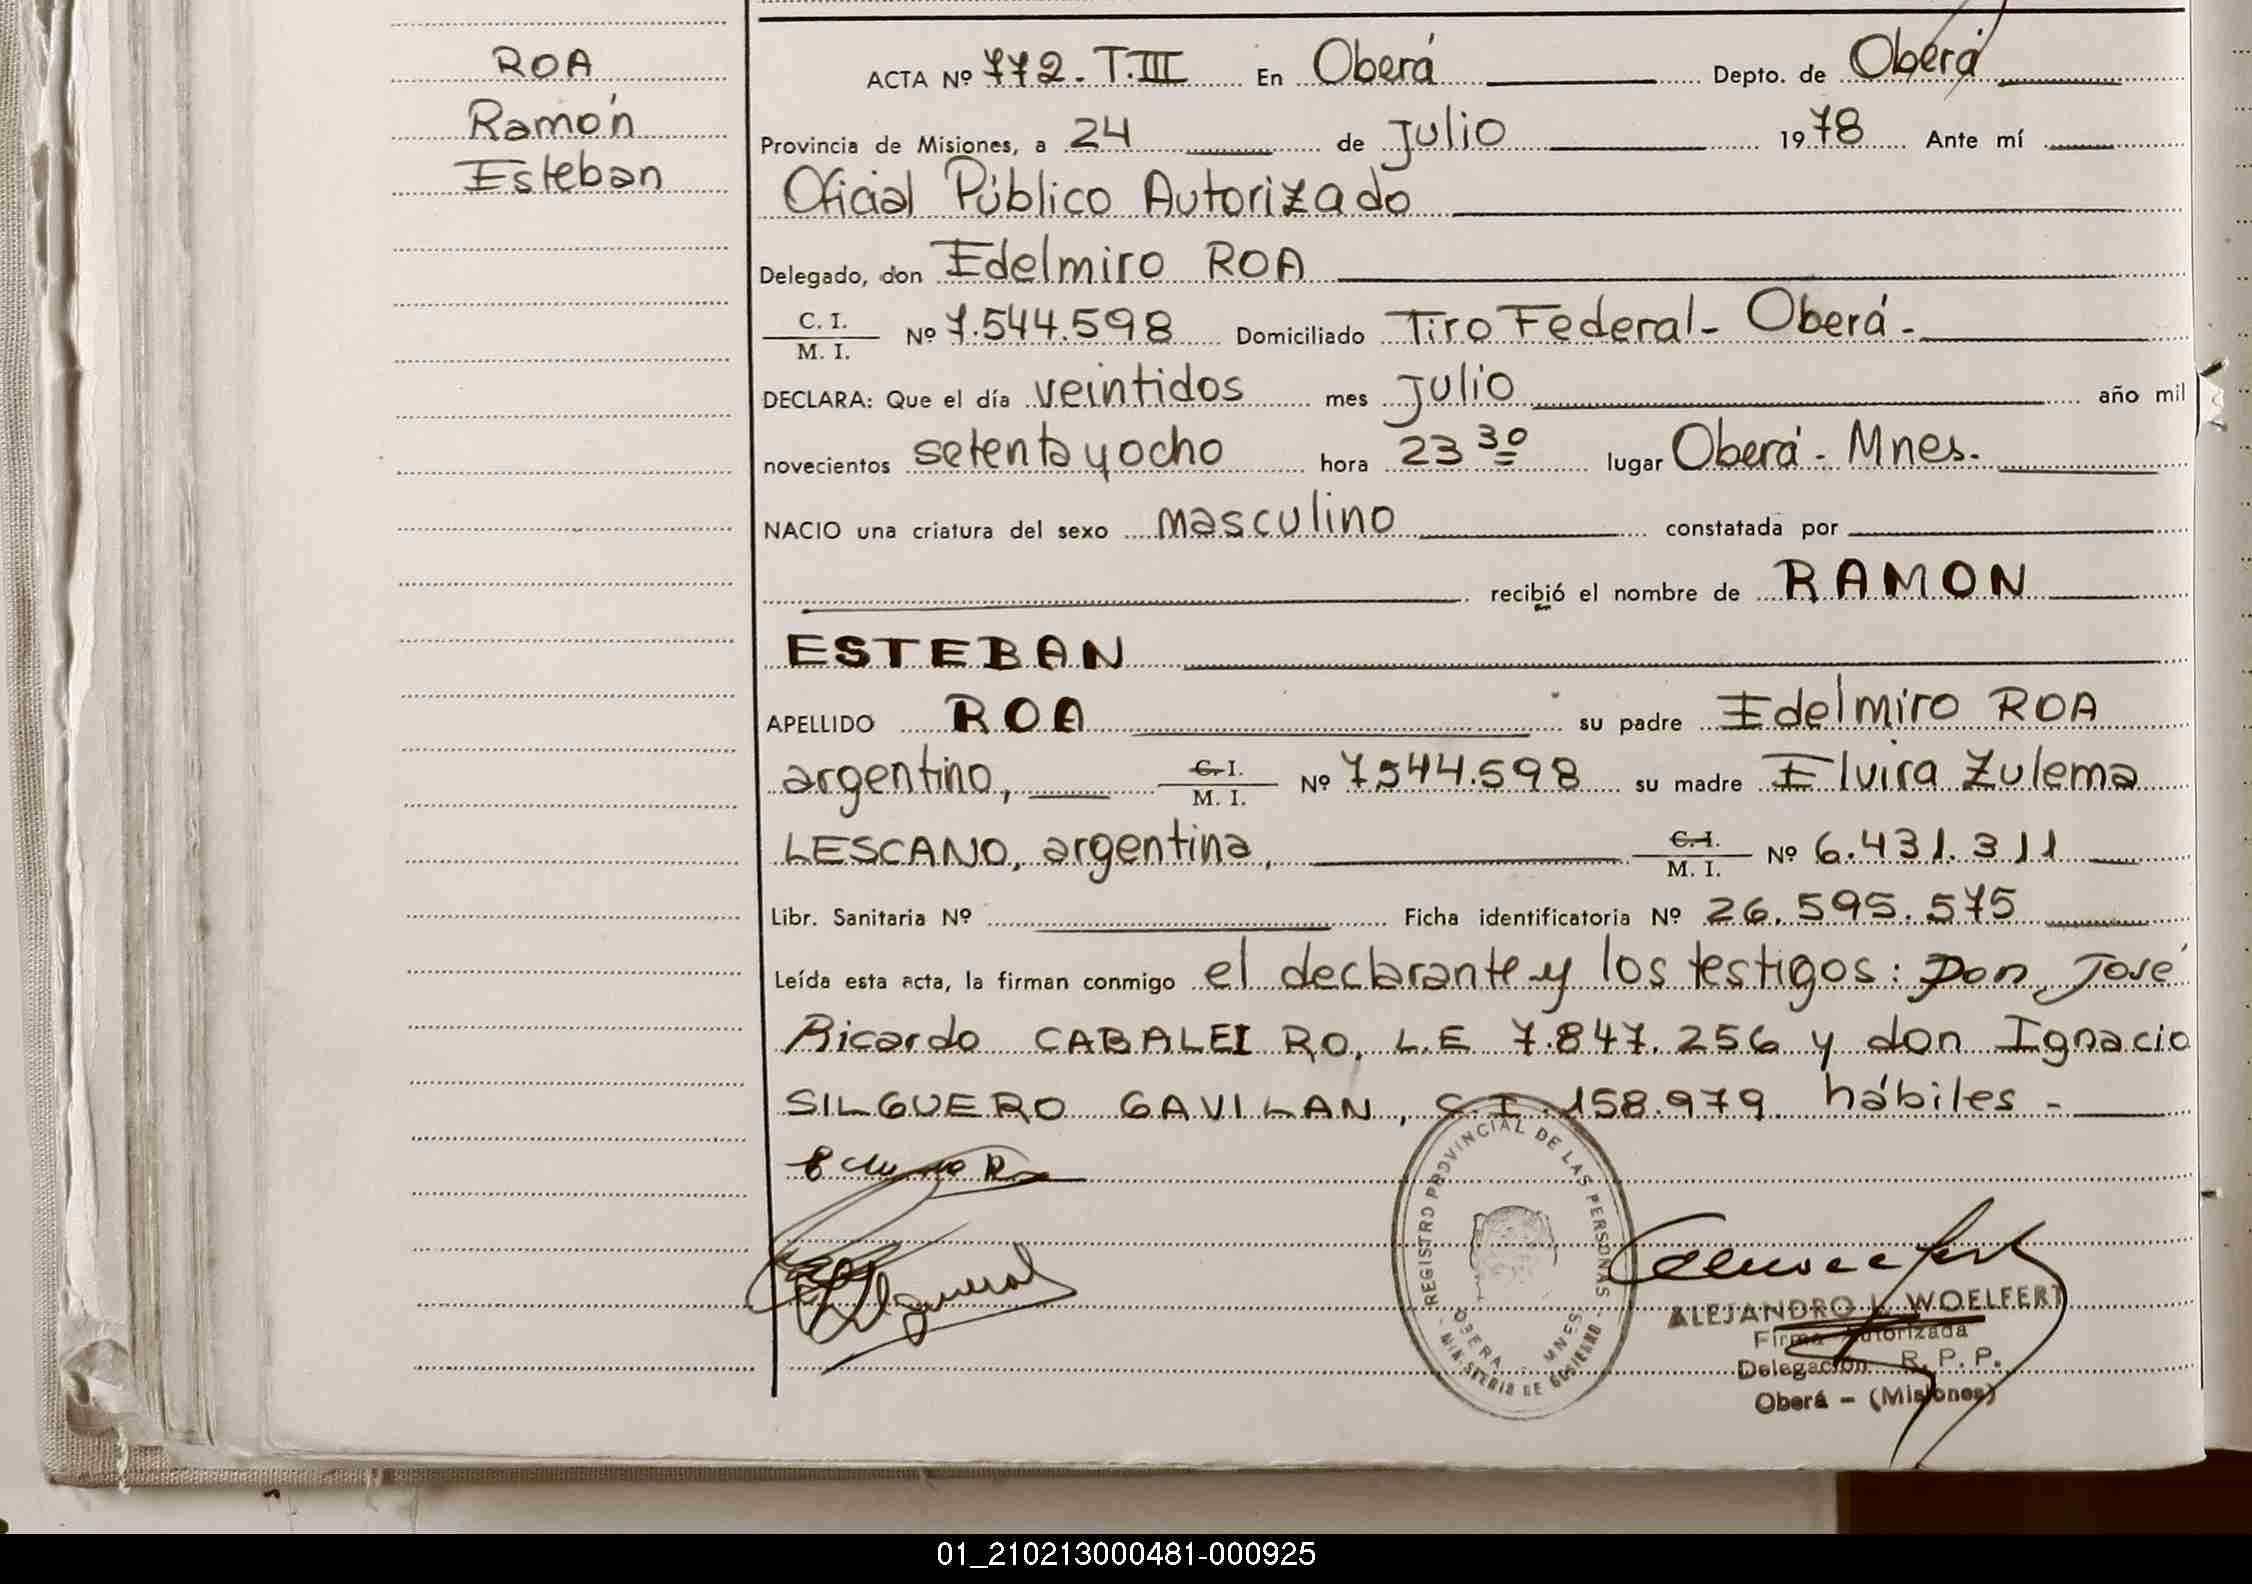 ROA
Ramón
Esteban
ACTA Nº 772. T.III En Oberá Depto. de Oberá
Provincia de Misiones, a 24 de Julio 1978 Ante mí
Oficial Público Autorizado
Delegado, don Edelmiro ROA
C. I.
M. I. Nº 7.544.598 Domiciliado Tiro Federal - Oberá -
DECLARA: Que el día veintidos mes Julio año mil
novecientos setenta y ocho hora 23 30 lugar Oberá - Mnes.
NACIO una criatura del sexo masculino constatada por
recibió el nombre de RAMON
ESTEBAN
APELLIDO ROA su padre Edelmiro ROA
argentino, C. I.
M. I. Nº 7544.598 su madre Elvira Zulema
LESCANO, argentina, C. I.
M. I. Nº 6.431.311
Libr. Sanitaria Nº Ficha identificatoria Nº 26.595.575
Leída esta acta, la firman conmigo el declarante y los testigos: Don José
Ricardo CABALEIRO, L.E 7.847.256 y don Ignacio
SILGUERO GAVILAN, C.I. 158.979 hábiles -
REGISTRO PROVINCIAL DE LAS PERSONAS
OBERA - MNES
MINISTERIO DE GOBIERNO
ALEJANDRO L. WOELFERT
Firma Autorizada
Delegación R. P. P.
Oberá - (Misiones)
01_210213000481-000925